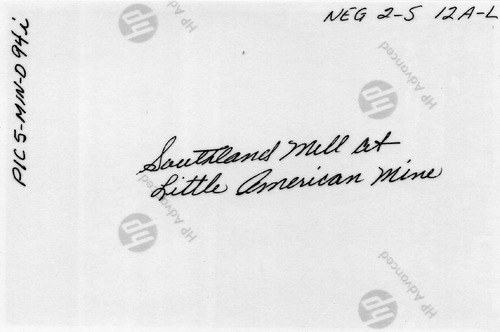 NEG 2-S 12A-L
PIC 5-MIN-D94i
Southland Mill at
Little American Mine
hp
HP Advanced
hp
HP Advanced
hp
HP Advanced
hp
HP Advanced